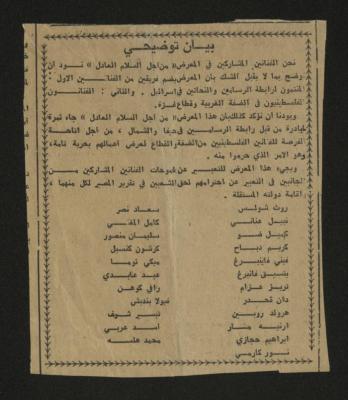 بيان توضيحي
نحن الفنانين المشاركين في المعرض «من اجل السلام العادل» نود ان
نوضح بما لا يقبل الشك بان المعرض يضم فريقين من الفنانين الاول:
المنتمون لرابطة الرسامين والنحاتين في اسرائيل. والثاني: الفنانون
الفلسطينيون في الضفة الغربية وقطاع غزة.
وبودنا ان نؤكد كذلك بان هذا المعرض «من اجل السلام العادل» جاء ثمرة
لمبادرة من قبل رابطة الرسامين في حيفا والشمال، من اجل اتاحة
الفرصة للفنانين الفلسطينيين من الضفة والقطاع لعرض اعمالهم بحرية تامة،
وهو الامر الذي حرموا منه.
ويجيء هذا المعرض للتعبير عن طموحات الفنانين المشاركين من
الجانبين في التعبير عن احترامهم لحق الشعبين في تقرير المصير لكل منهما،
واقامة دولته المستقلة.
روت شولس
نبيل عناني
كميل ضو
كريم دباح
غيني فاينبرغ
تيريز عزام
دان كدار
هرولد روبين
ابراهيم حجازي
نور كارمي
سعاد نصر
كامل المغني
سليمان منصور
كرشون كنسبل
ميكي نوما
عبد عابدي
رافي كوهن
فيولا بندش
تيسير شرف
اسد عربي